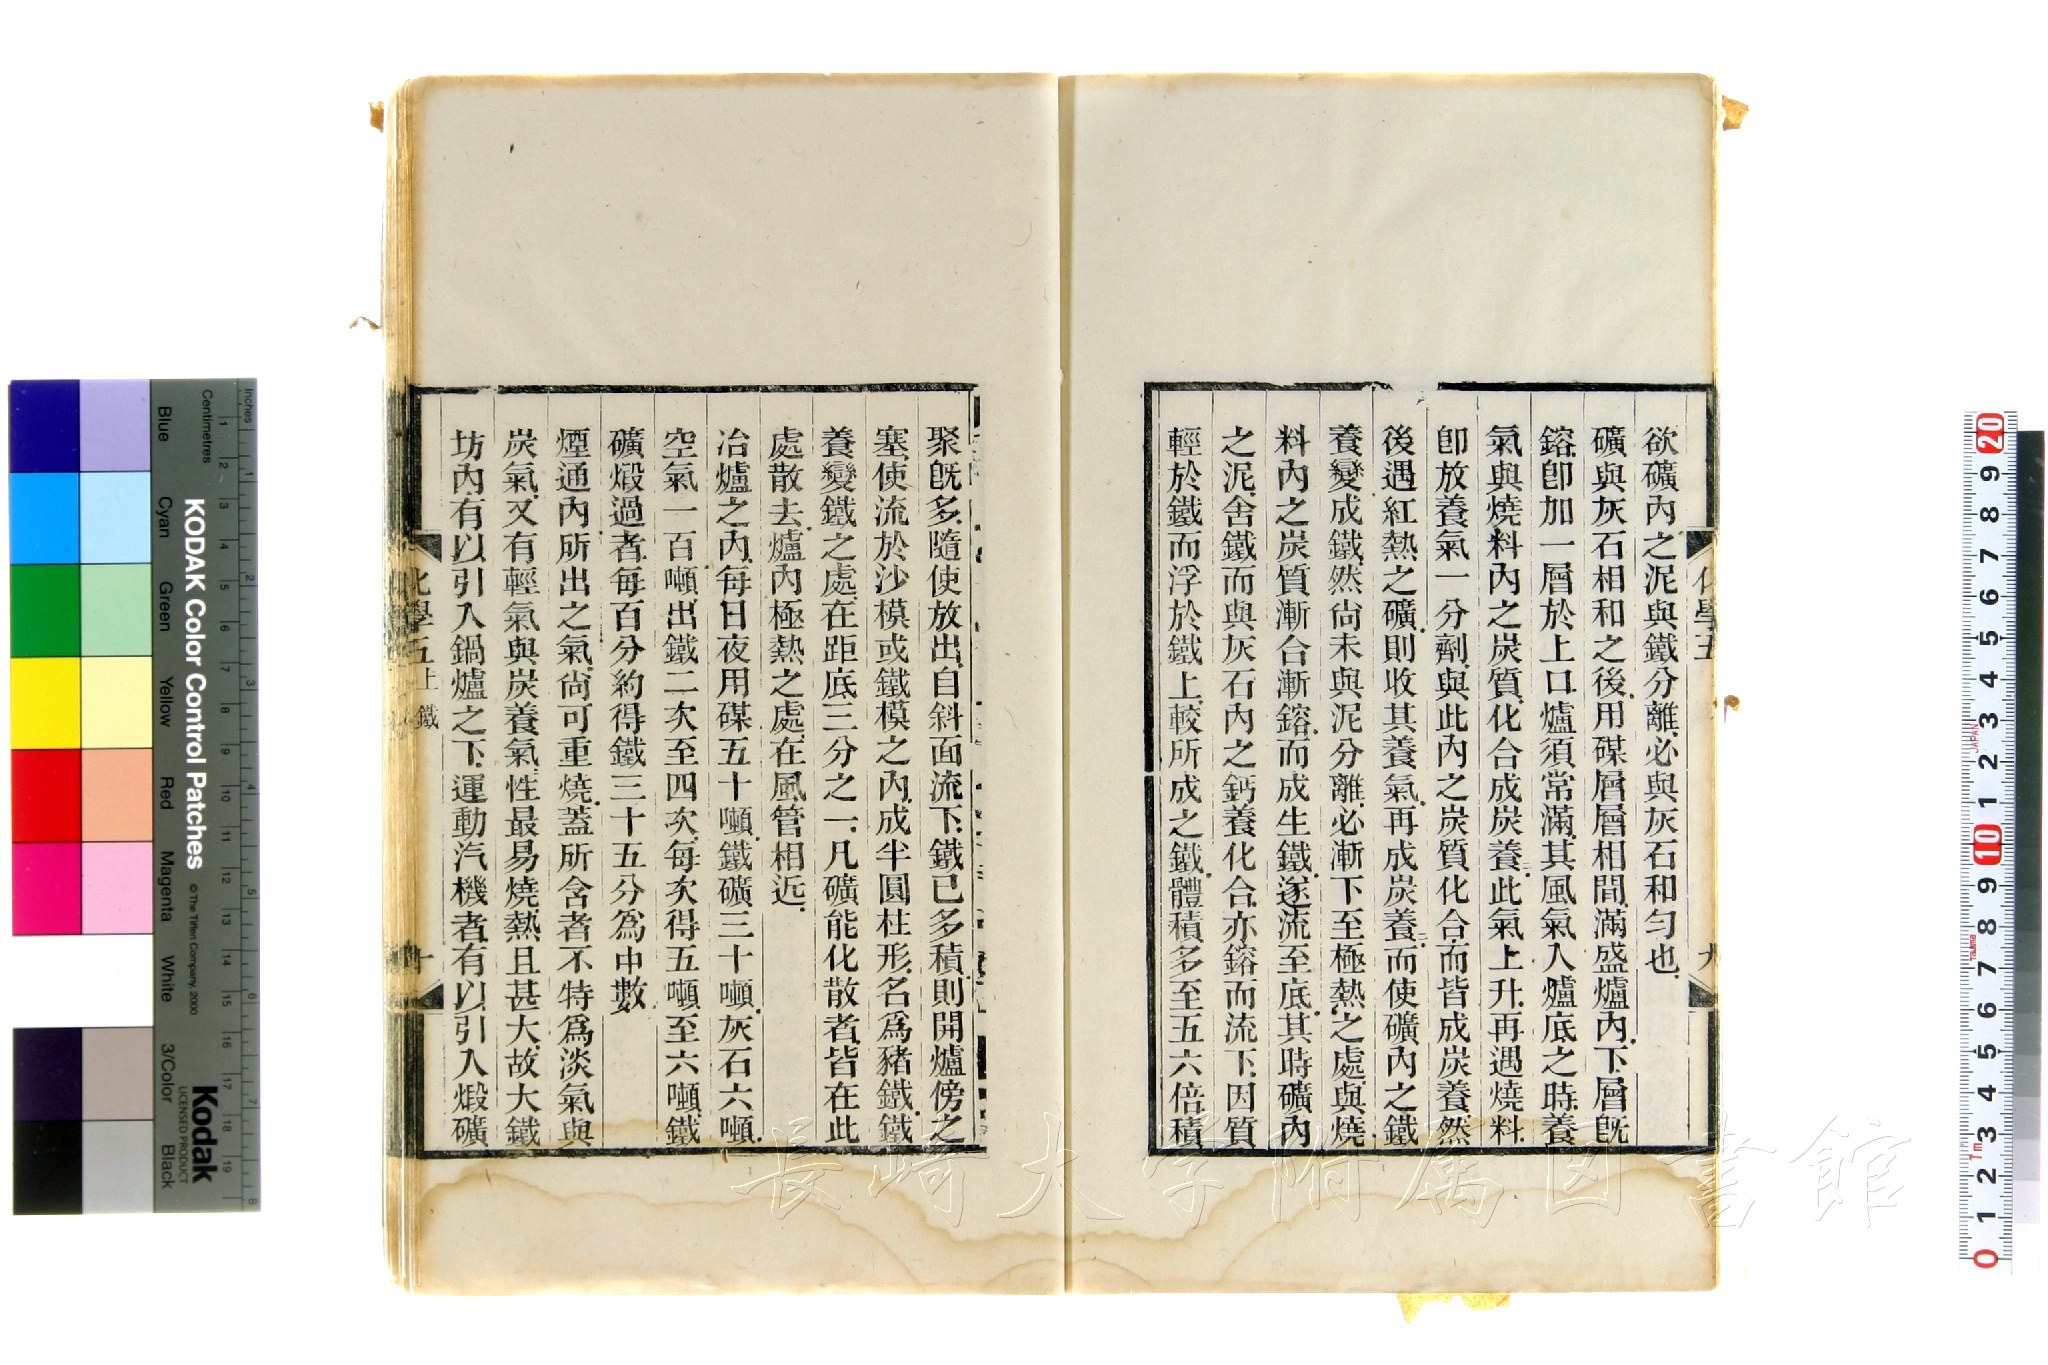 欲礦內之泥與鐵分離必與灰石和勻也
礦與灰石相和之後用煤層層相間滿盛爐內下層旣
鎔卽加一層於上口爐須常滿其風氣入爐底之時養
氣與燒料內之炭質化合成炭養二此氣上升再遇燒料
卽放養氣一分劑與此內之炭質化合而皆成炭養然
後遇紅熱之礦則收其養氣再成炭養二而使礦內之鐵
養變成鐵然尙未與泥分離必漸下至極熱之處與燒
料內之炭質漸合漸鎔而成生鐵遂流至底其時礦內
之泥舍鐵而與灰石內之鈣養化合亦鎔而流下因質
輕於鐵而浮於鐵上較所成之鐵體積多至五六倍積
化學五
九
聚旣多隨使放出自斜面流下鐵已多積則開爐傍之
塞使流於沙模或鐵模之內成半圓柱形名爲豬鐵鐵
養變鐵之處在距底三分之一凡礦能化散者皆在此
處散去爐內極熱之處在風管相近
冶爐之內每日夜用煤五十噸鐵礦三十噸灰石六噸
空氣一百噸出鐵二次至四次每次得五噸至六噸鐵
礦煅過者每百分約得鐵三十五分爲中數
煙通內所出之氣尙可重燒蓋所含者不特爲淡氣與
炭氣又有輕氣與炭養氣性最易燒熱且甚大故大鐵
坊內有以引入鍋爐之下運動汽機者有以引入煅礦
化學五上 鐵
十
KODAK Color Control Patches
© The Tiffen Company, 2000
Kodak
LICENSED PRODUCT
Inches
Centimetres
Blue
Cyan
Green
Yellow
Red
Magenta
White
3/Color
Black
JAPAN
長崎大学附属図書館